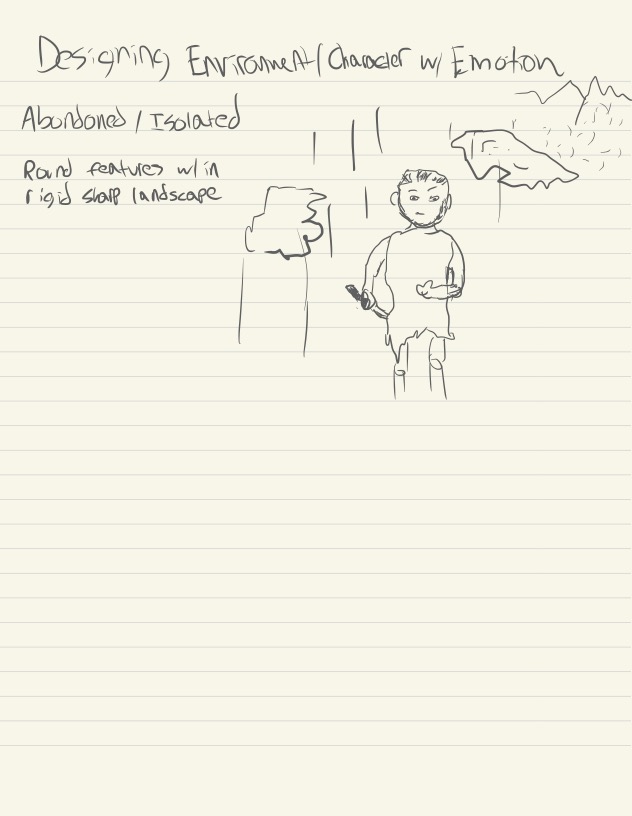 Designing Environment/Character w/ Emotion
Abandoned / Isolated
Round features w/in
rigid sharp landscape